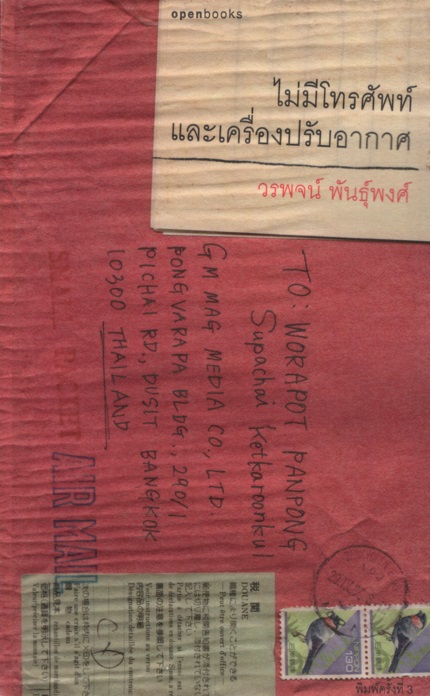 openbooks
ไม่มีโทรศัพท์
และเครื่องปรับอากาศ
วรพจน์ พันธุ์พงศ์
TO: WORAPOT PANPONG
Supachai Ketkaroonkul
GM MAG MEDIA CO., LTD.
PONGVARAPA BLDG., 290/1
PICHAI RD., DUSIT BANGKOK
10300 THAILAND
AIR MAIL
税関
DOUANE
CD
NIPPON
130
พิมพ์ครั้งที่ 3